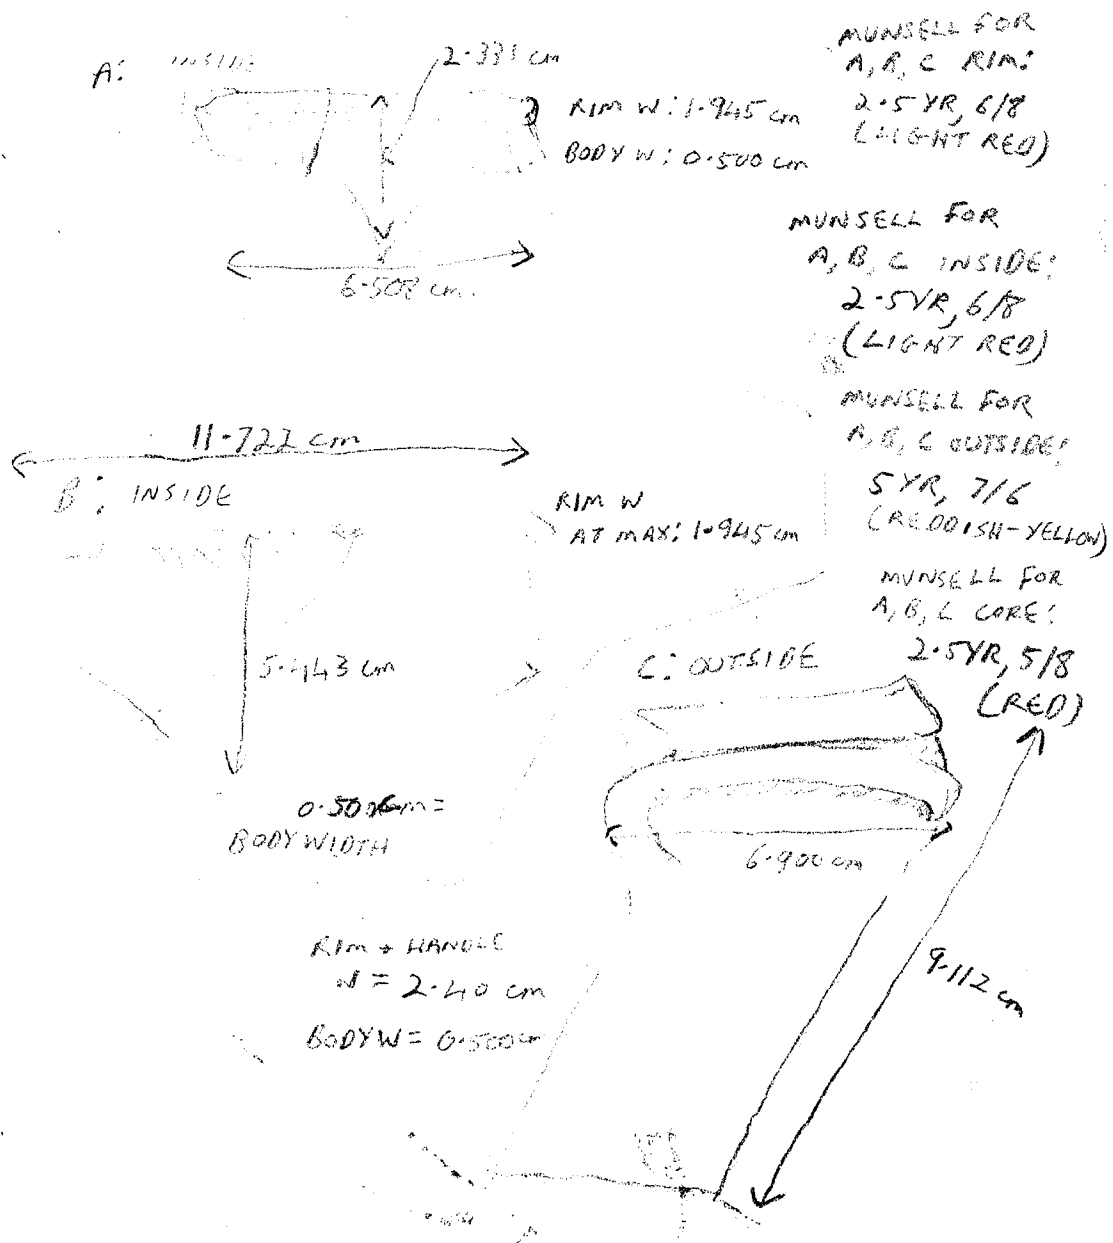 A: INSIDE
2.331 cm
RIM W: 1.945 cm
BODY W: 0.500 cm
6.508 cm.
MUNSELL FOR
A, B, C RIM:
2.5 YR, 6/8
(LIGHT RED)
MUNSELL FOR
A, B, C INSIDE:
2.5YR, 6/8
(LIGHT RED)
MUNSELL FOR
A, B, C OUTSIDE:
5 YR, 7/6
(REDDISH-YELLOW)
MUNSELL FOR
A, B, C CORE:
2.5YR, 5/8
(RED)
11.722 cm
B: INSIDE
RIM W
AT MAX: 1.945 cm
5.443 cm
0.500 cm =
BODY WIDTH
C: OUTSIDE
6.900 cm
9.112 cm
RIM + HANDLE
W = 2.40 cm
BODY W = 0.500 cm